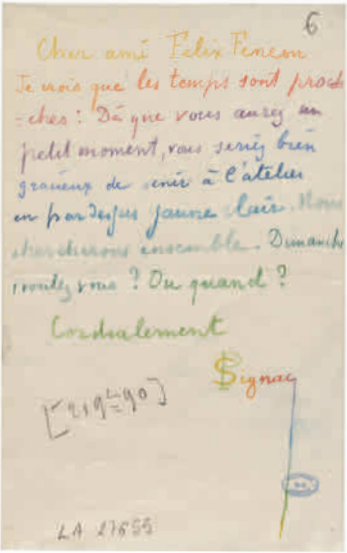 6
Cher ami Felix Feneon
Je crois que les temps sont proch
-ches : Dès que vous aurez un
petit moment, vous seriez bien
gracieux de venir à l'atelier
en pardessus jaune clair. Nous
chercherons ensemble. Dimanche
voulez vous ? Ou quand ?
Cordialement
Signac
LA 27655